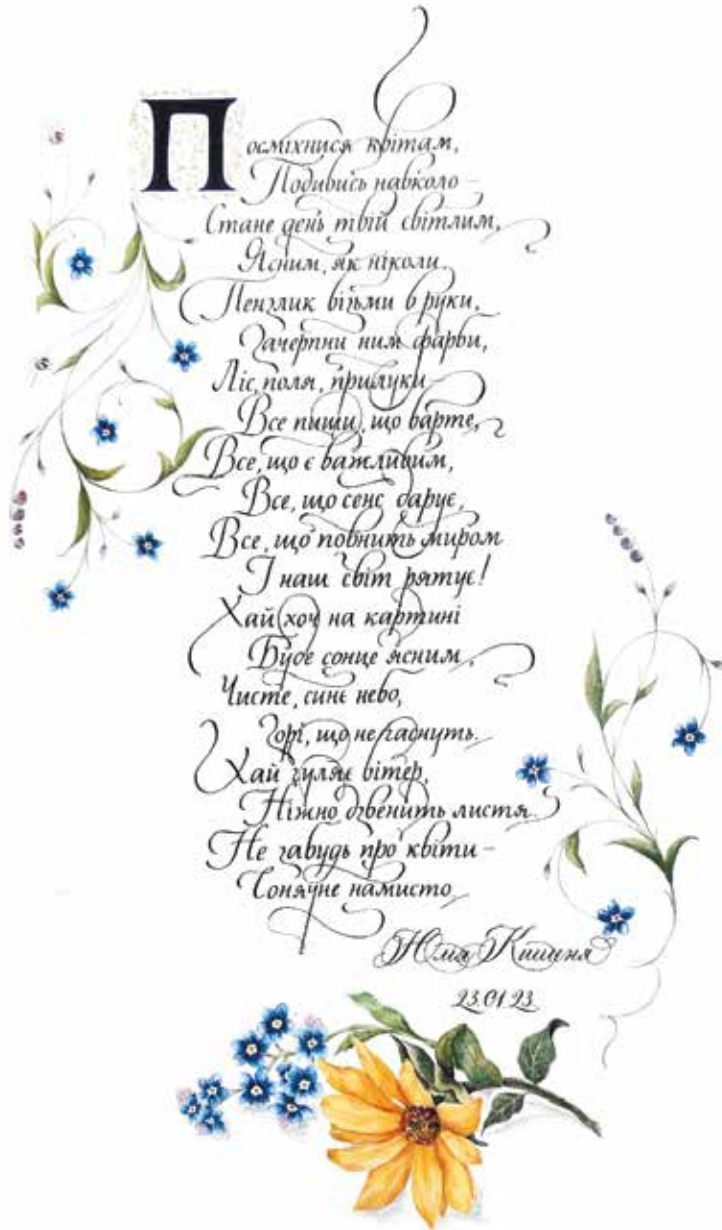 Посміхнися квітам,
Подивись навколо –
Стане день твій світлим,
Ясним, як ніколи.
Пензлик візьми в руки,
Зачерпни ним фарби,
Ліс, поля, прилуки –
Все пиши, що варте,
Все, що є важливим,
Все, що сенс дарує,
Все, що повнить миром
І наш світ рятує!
Хай хоч на картині
Буде сонце ясним,
Чисте, синє небо,
Зорі, що не гаснуть.
Хай гуляє вітер,
Ніжно дзвенить листя.
Не забудь про квіти –
Сонячне намисто.
23.01.23